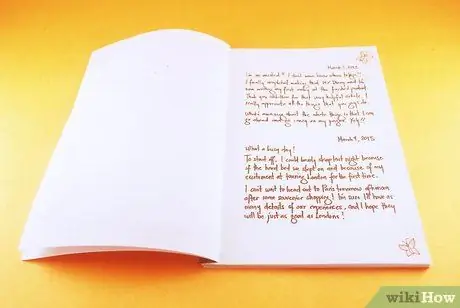 March 1, 2015
I'm so excited! I don't even know where to begin!
I finally completed making that DIY Diary and I'm
now writing my first entry at the finished product.
Thank you wikiHow for that very helpful article. I
really appreciate all the things that you guys do.
What's more, about this whole thing is that I can
go abroad carrying my Yey!!
March 4, 2015
What a busy day!
To start off, I could barely sleep last night because
of the hard bed we slept on and because of my
excitement at touring London for the first time.
I can't wait to head out to Paris tomorrow afternoon
after some souvenir shopping! I'm sure I'll have as
many details of our experiences, and I hope they
will be just as good as London's!
wikiHow